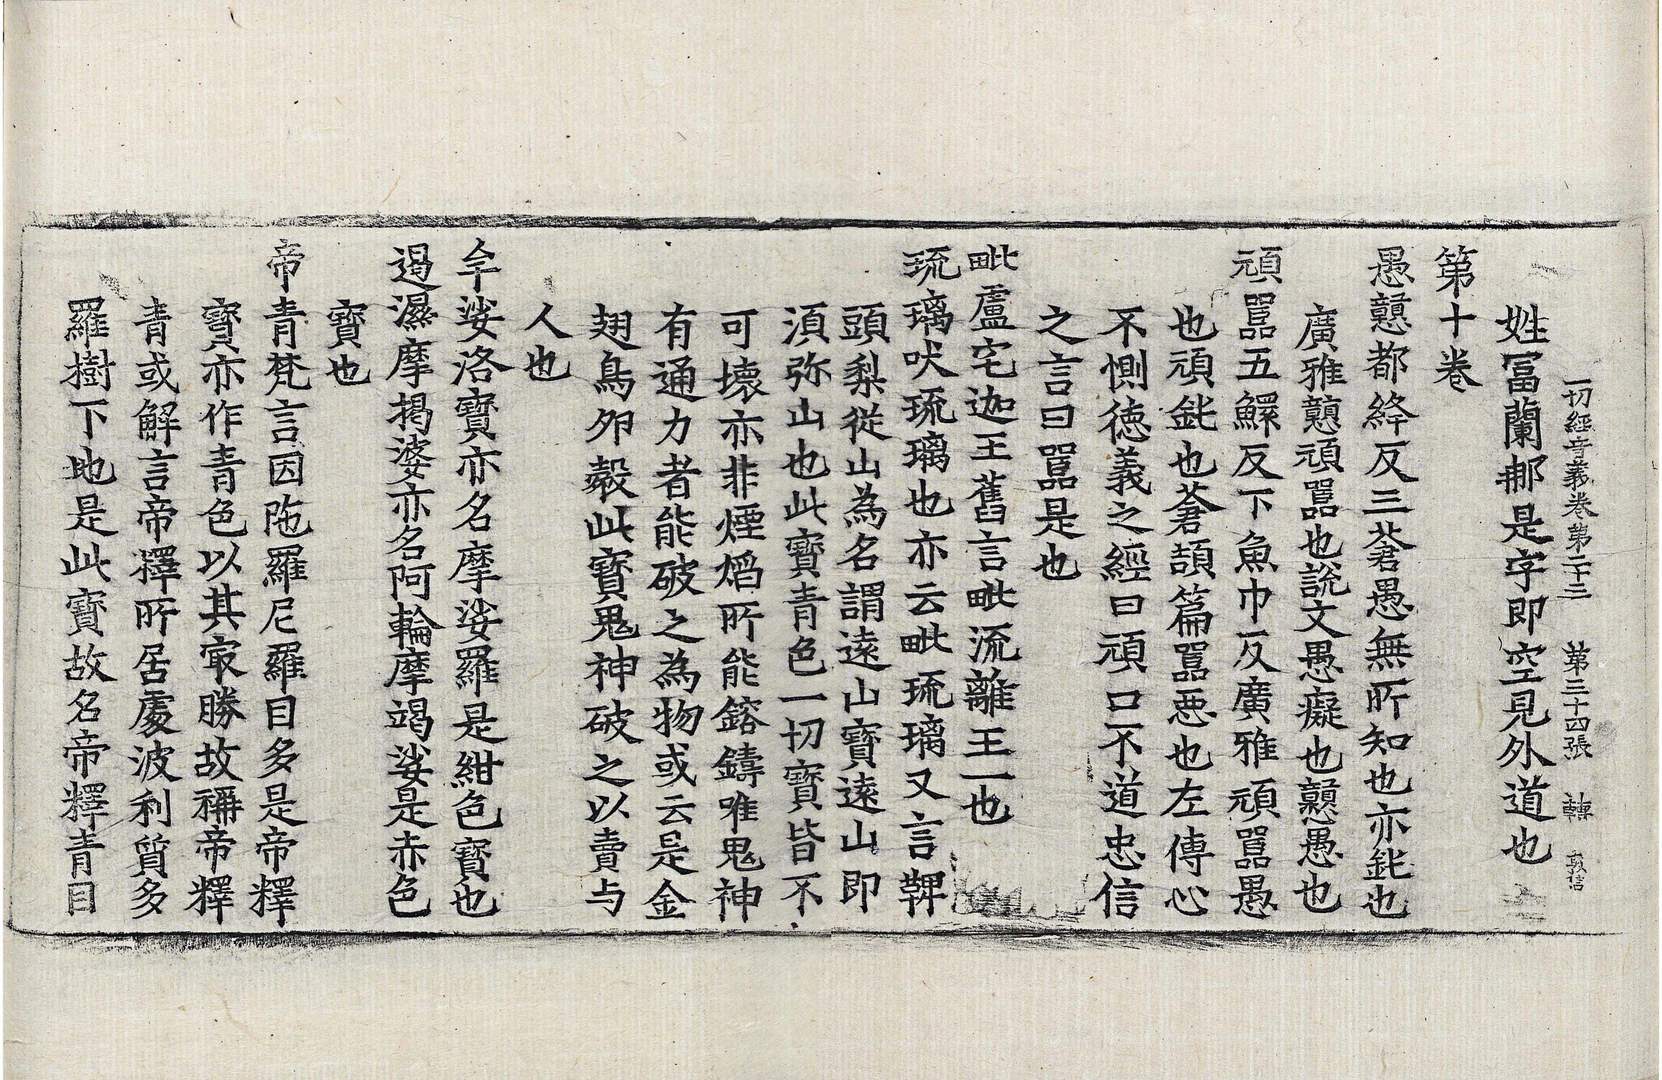 一切經音義卷第二十三 第三十四張 轉 敦信
姓冨蘭那是字即空見外道也
第十卷
愚戇都絳反三蒼愚無所知也亦鈍也
廣雅戇頑嚚也說文愚癡也戇愚也
頑嚚五鰥反下魚巾反廣雅頑嚚愚
也頑鈍也蒼頡篇嚚惡也左傳心
不惻德義之經曰頑口不道忠信
之言曰嚚是也
毗盧宅迦王舊言毗流離王一也
琉璃吠琉璃也亦云毗琉璃又言鞞
頭梨從山為名謂遠山寶遠山即
湏弥山也此寶青色一切寶皆不
可壞亦非煙焰所能鎔鑄唯鬼神
有通力者能破之為物或云是金
翅鳥卵㲉此寶鬼神破之以賣与
人也
牟娑洛寶亦名摩娑羅是紺色寶也
遏濕摩揭婆亦名阿輪摩竭娑是赤色
寶也
帝青梵言因陁羅尼羅目多是帝釋
寶亦作青色以其㝡勝故稱帝釋
青或解言帝釋所居處波利質多
羅樹下地是此寶故名帝釋青目